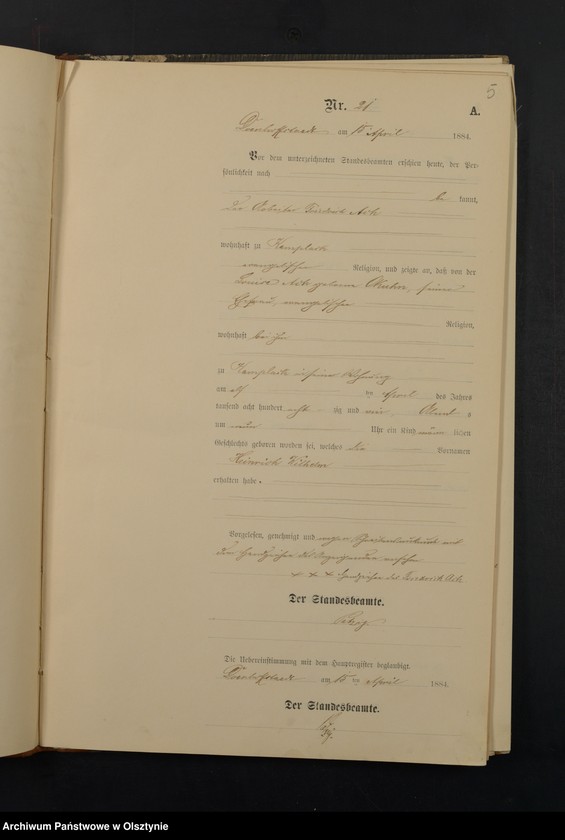 5
Nr. 21
A.
am 15 April 1884.
Vor dem unterzeichneten Standesbeamten erschien heute, der Per-
sönlichkeit nach
be kannt,
der Arbeiter
wohnhaft zu
evangelischer Religion, und zeigte an, daß von der
Louise geborene seiner
Ehefrau, evangelischer
Religion,
wohnhaft bei ihm
zu in seiner Wohnung
am elf ten April des Jahres
tausend acht hundert acht zig und vier, Abend s
um neun Uhr ein Kind männ lichen
Geschlechts geboren worden sei, welches die Vornamen
Heinrich Wilhelm
erhalten habe.
Vorgelesen, genehmigt und wegen
dem Handzeichen des Anzeigenden versehen
× × × Handzeichen des
Der Standesbeamte.
Die Uebereinstimmung mit dem Hauptregister beglaubigt.
am 15 ten April 1884.
Der Standesbeamte.
Archiwum Państwowe w Olsztynie